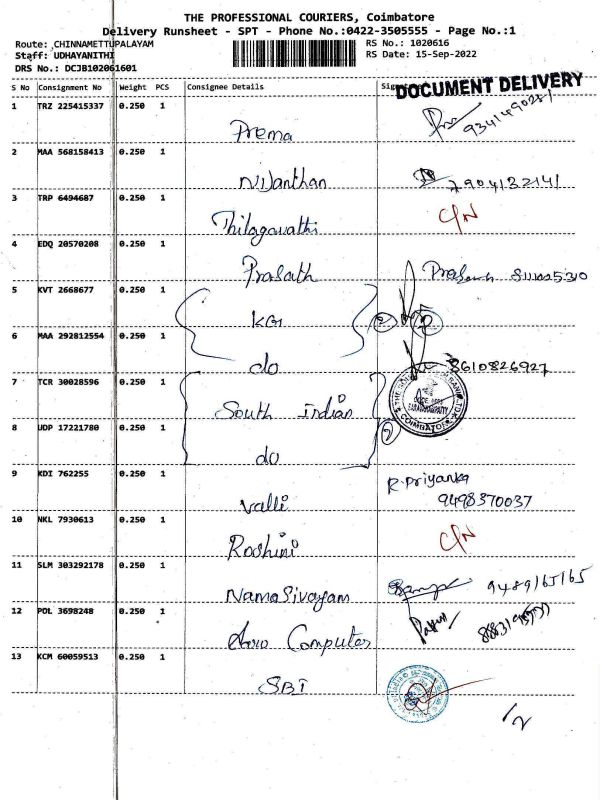 THE PROFESSIONAL COURIERS, Coimbatore
Delivery Runsheet - SPT - Phone No.:0422-3505555 - Page No.:1
Route: CHINNAMETTUPALAYAM RS No.: 1020616
Staff: UDHAYANITHI RS Date: 15-Sep-2022
DRS No.: DCJB102061601
DOCUMENT DELIVERY
S No Consignment No Weight PCS Consignee Details
1 TRZ 225415337 0.250 1
Prema
2 MAA 568158413 0.250 1
Nijanthan 7904132141
3 TRP 6494687 0.250 1
Thilagavathi C/N
4 EDQ 20570208 0.250 1
Prasath
5 KVT 2668677 0.250 1
KG
6 MAA 292812554 0.250 1
do 8610826927
7 TCR 30028596 0.250 1
South Indian COIMBATORE
8 UDP 17221780 0.250 1
do
9 KDI 762255 0.250 1
Valli R. Priyanka
9498370037
10 NKL 7930613 0.250 1
Roshini C/N
11 SLM 303292178 0.250 1
NamaSivayam 9489165165
12 POL 3698248 0.250 1
Computer
13 KCM 60059513 0.250 1
SBI